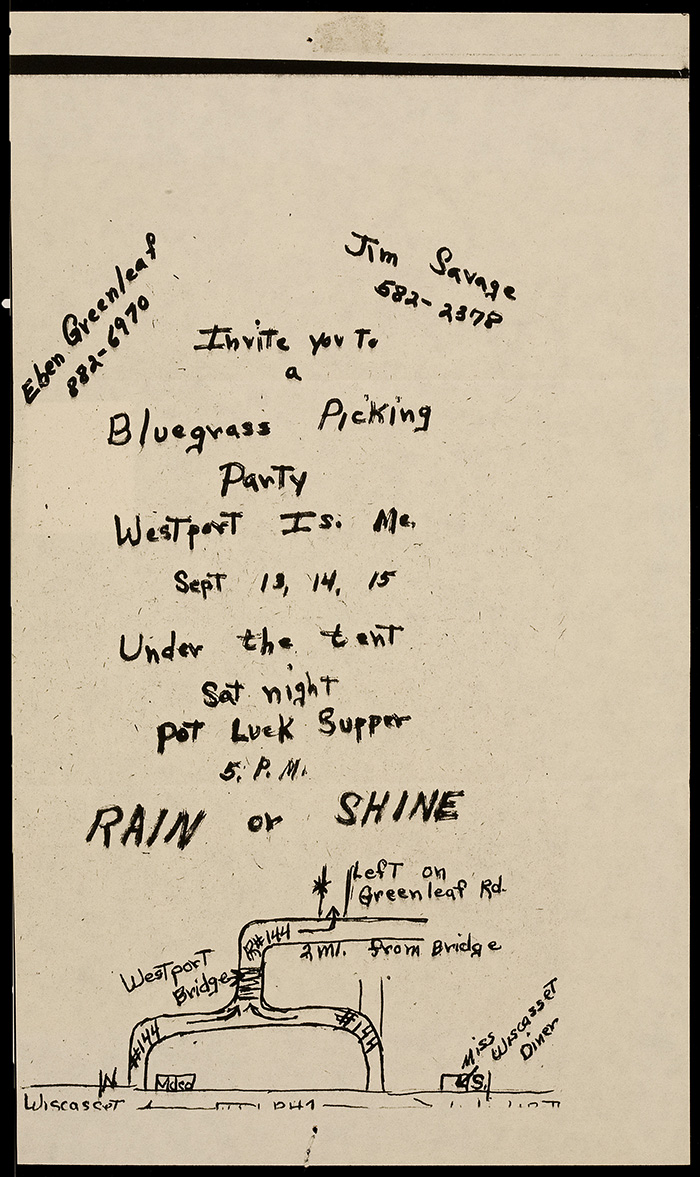 Eben Greenleaf
882-6970
Jim Savage
582-2378
Invite you To
a
Bluegrass Picking
Party
Westport Is. Me.
Sept 13, 14, 15
Under the tent
Sat night
Pot Luck Supper
5. P. M.
RAIN or SHINE
Left on
Greenleaf Rd.
R#144
2 MI. from Bridge
Westport
Bridge
#144
#144
Miss
Wiscasset
Diner
Wiscasset